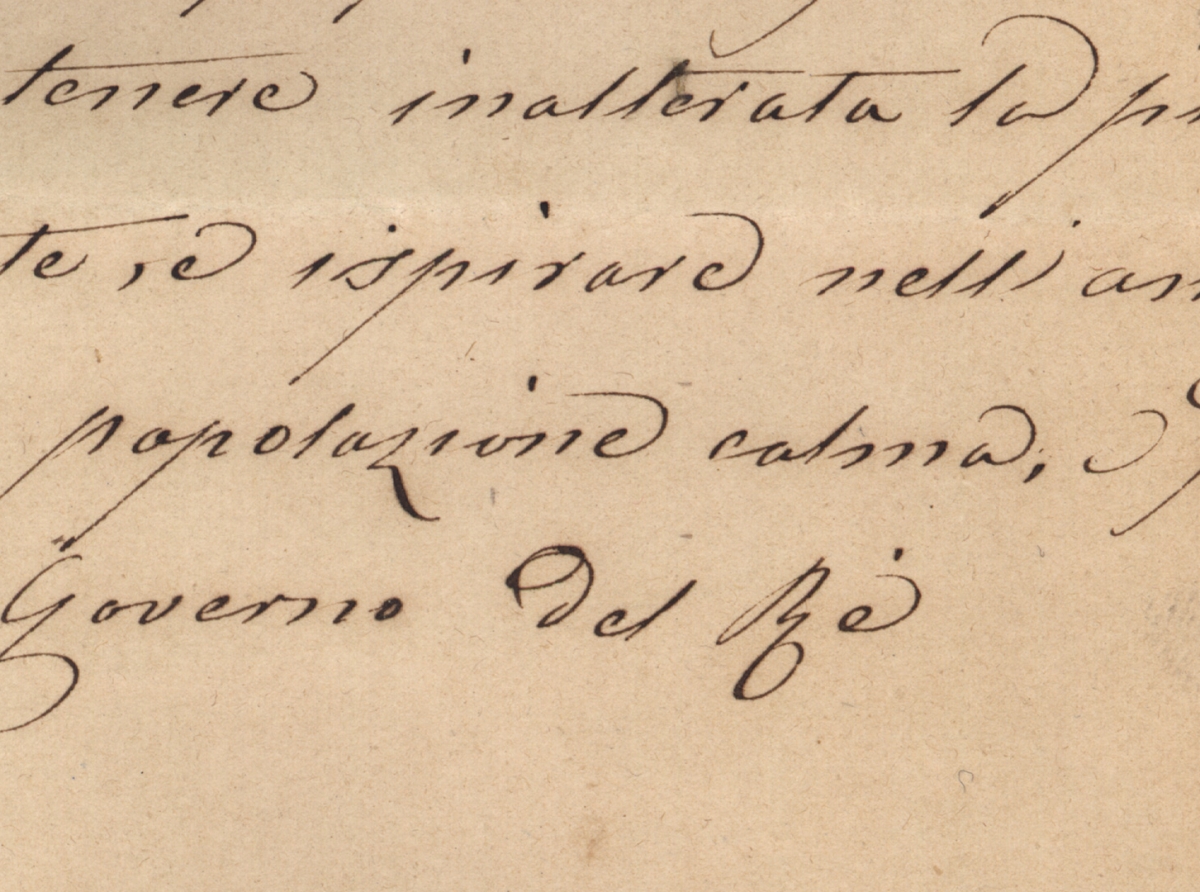 tenere inalterata la
te, e ispirare nell'
popolazione calma, e
Governo del Re